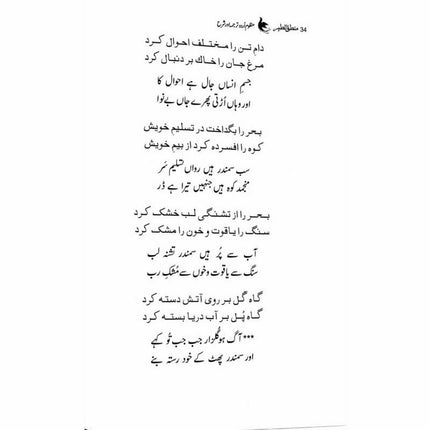 34 منطق الطیر منظوم اردو ترجمہ اور شرح
دام تن را مختلف احوال کرد
مرغ جان را خاک بر دنبال کرد
جسمِ انساں جال ہے احوال کا
اور وہاں اُڑتی پھرے جاں بے نوا
بحر را بگداخت در تسلیم خویش
کوه را افسرده کرد از بیم خویش
سب سمندر ہیں رواں تسلیم سَر
منجمد کوہ ہیں جنہیں تیرا ہے ڈر
بحر را از تشنگی لب خشک کرد
سنگ را یاقوت و خون را مشک کرد
آب سے پُر ہیں سمندر تشنہ لب
سنگ سے یاقوت و خوں سے مُشک رب
گاه گل بر روی آتش دسته کرد
گاه پُل بر آب دریا بسته کرد
***آگ ہو گُلزار جب جب تُو کہے
اور سمندر پھٹ کے خود رستہ بنے